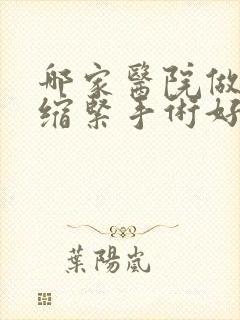 哪家醫院做
縮緊手術好
葉陽嵐